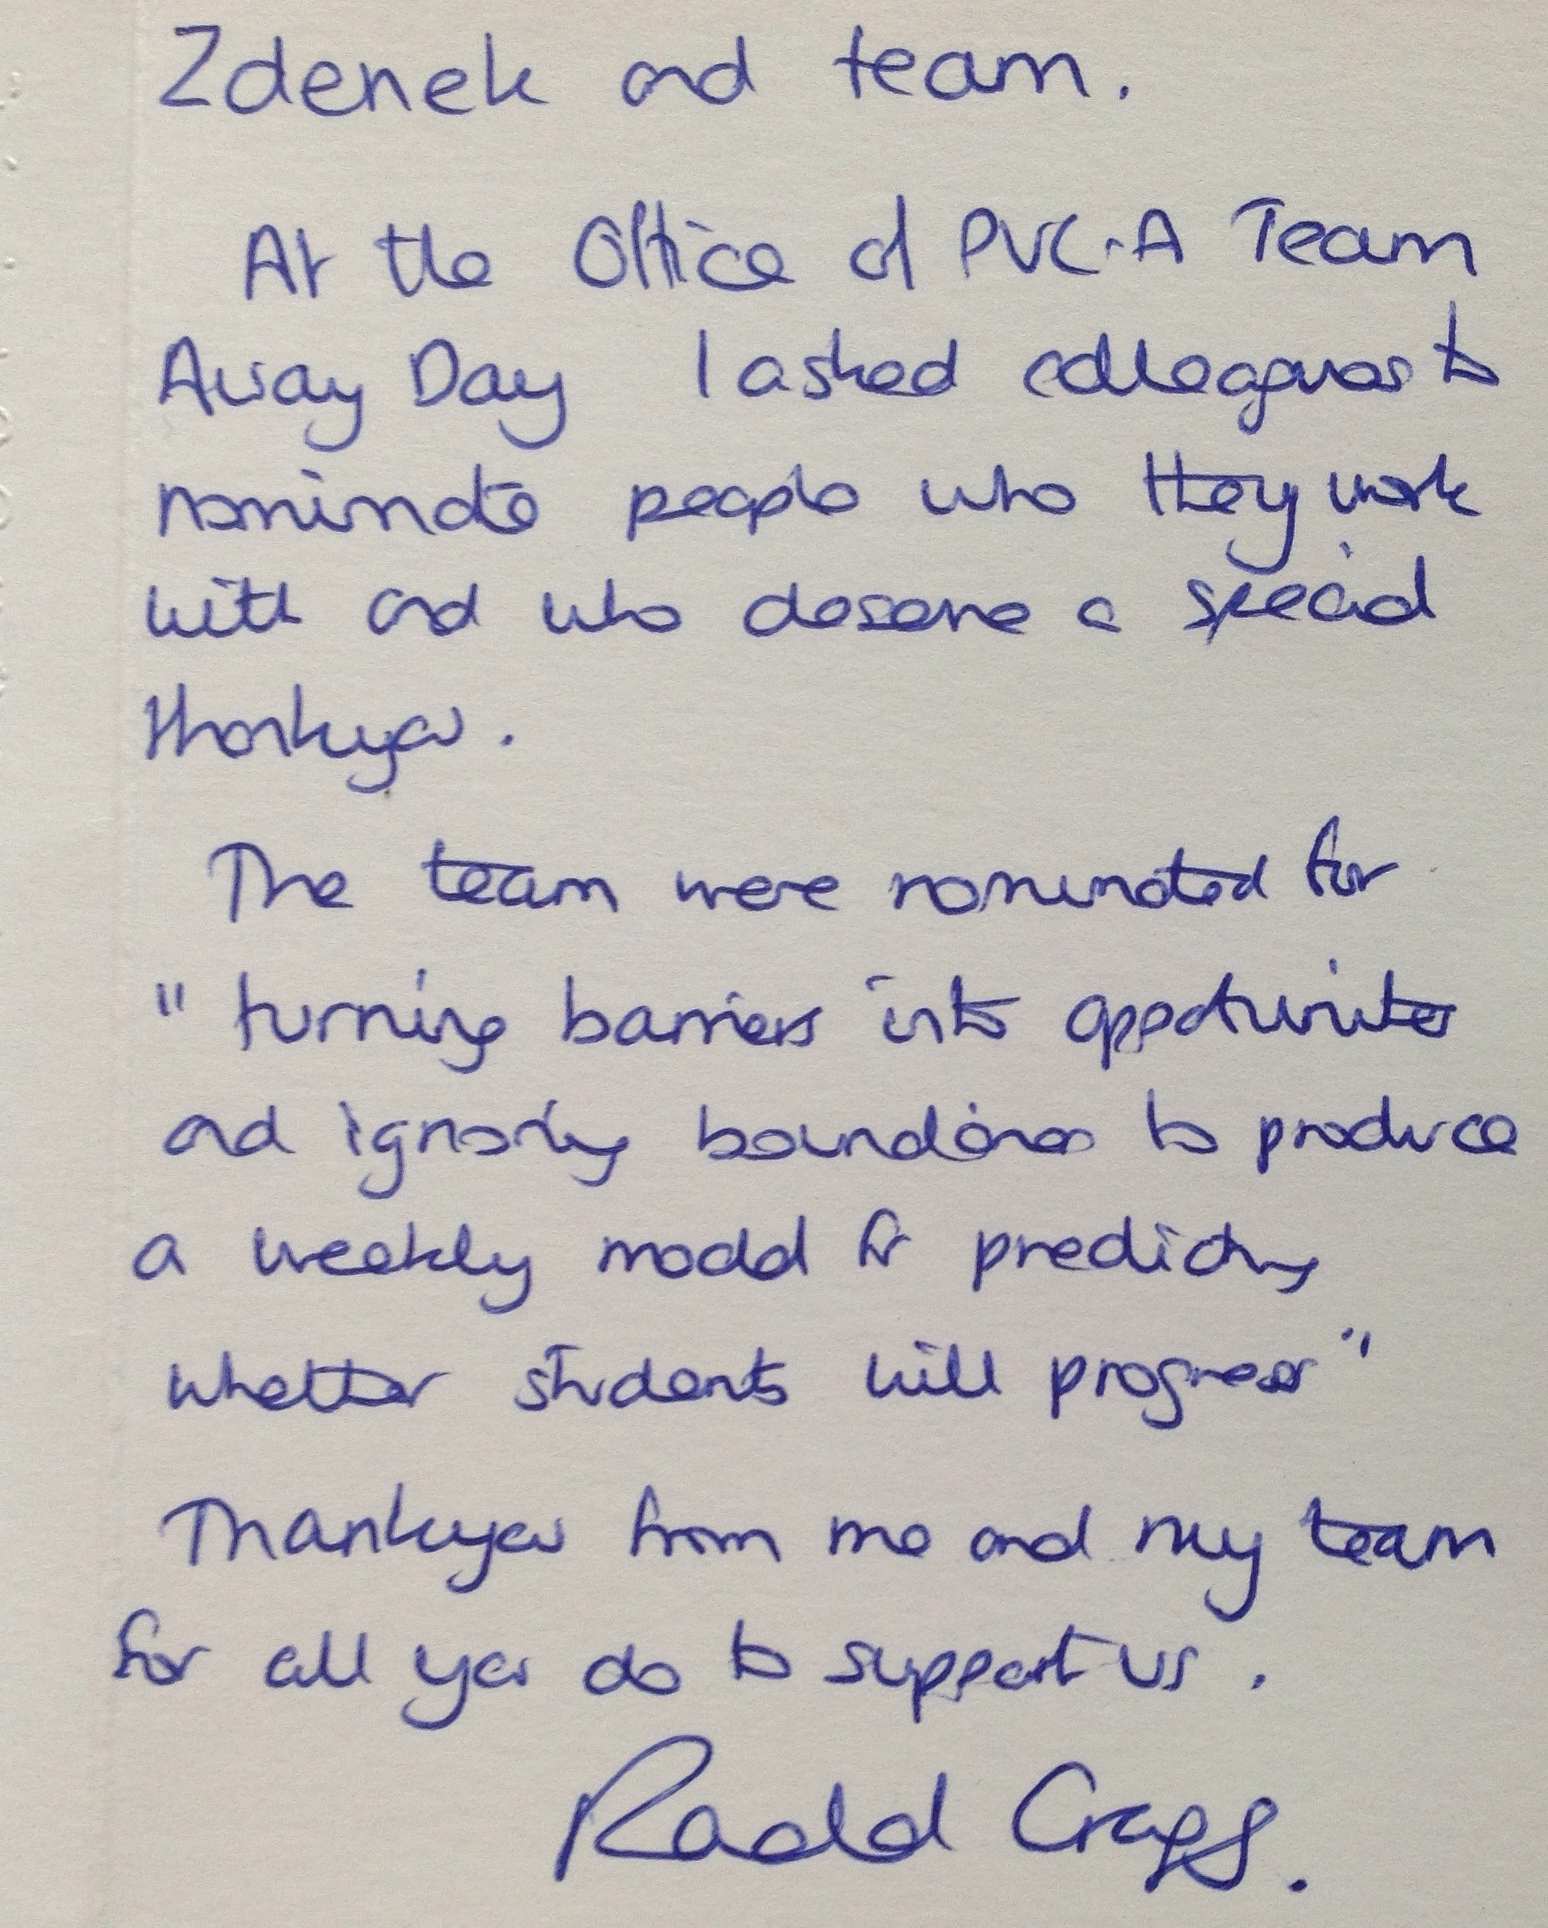 Zdenek and team.
At the Office of PVC-A Team
Away Day I asked colleagues to
nominate people who they work
with and who deserve a special
thankyou.
The team were nominated for
"turning barriers into opportunities
and ignoring boundaries to produce
a weekly model for predicting
whether students will progress"
Thankyou from me and my team
for all you do to support us.
Cragg.